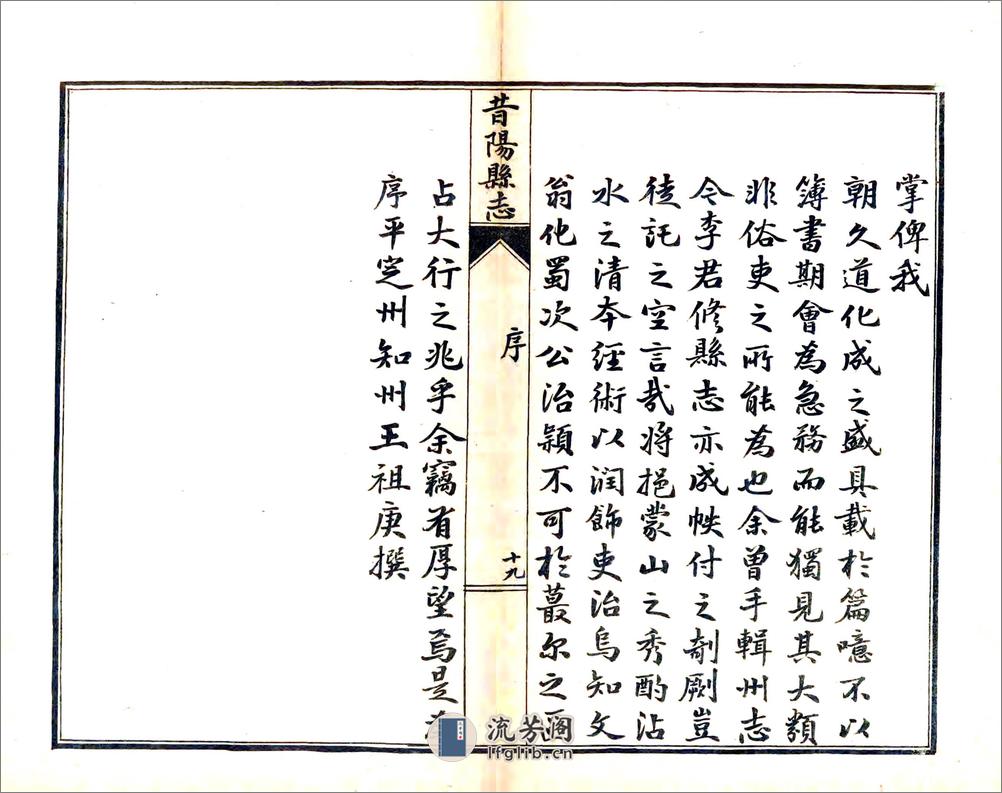 掌俾我
朝久道化成之盛具載於篇噫不以
簿書期會為急務而能獨見其大類
非俗吏之所能為也余曾手輯州志
令李君修縣志亦成帙付之剞劂豈
徒託之空言哉將挹蒙山之秀酌沾
水之清本經術以潤飾吏治烏知文
翁化蜀次公治潁不可於蕞尔之
昔陽縣志
序
十九
占大行之兆乎余竊有厚望焉是
序平定州知州王祖庚撰
流芳阁
lfglib.cn